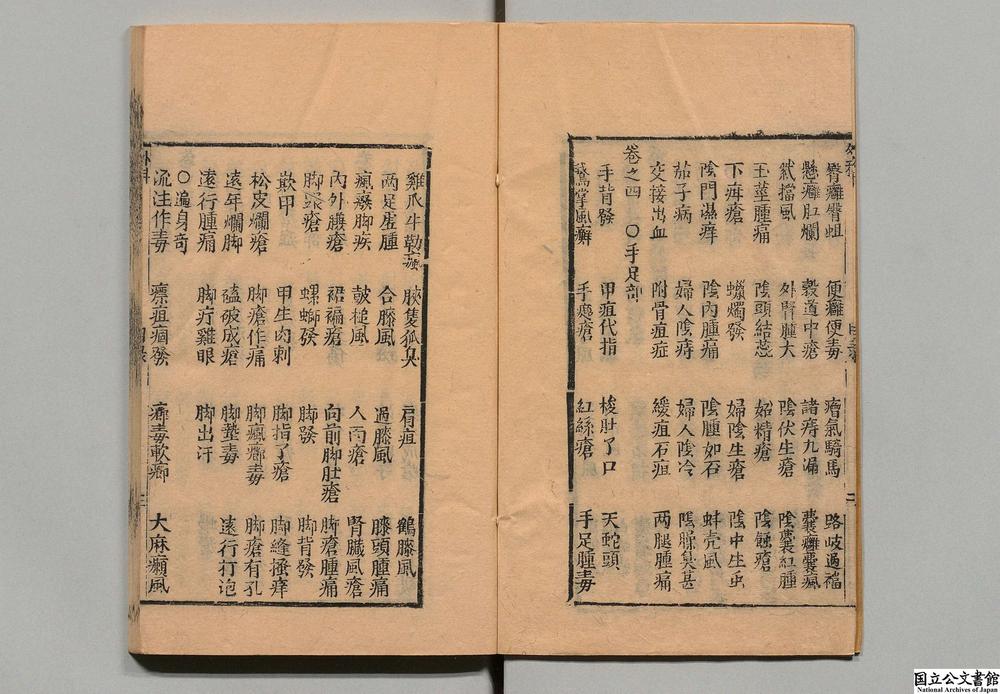 臀癰臀蛆 便癰便毒 㿈氣騎馬 路岐過福
懸癰肛爛 穀道中瘡 諸痔九漏 囊癰囊瘋
弒擋風 外腎腫大 陰伏生瘡 陰囊紅腫
玉莖腫痛 陰頭結蕊 妬精瘡 陰蝕瘡
下疳瘡 蠟燭發 婦陰生瘡 陰中生虫
陰門濕痒 陰內腫痛 陰腫如石 蚌壳風
茄子病 婦人陰痔 婦人陰冷 陰臊臭甚
交接出血 附骨疽症 緩疽石疽 兩腿腫痛
卷之四 ○手足部
手背發 甲疽代指 梭肚了口 天蛇頭
鵞掌風癬 手瘡 紅絲瘡 手足腫毒
雞爪牛勒 腋隻狐臭 肩疽 鶴膝風
兩足虛腫 合膝風 過膝風 膝頭腫痛
瘋癈脚疾 皷槌風 人面瘡 腎臟風瘡
內外臁瘡 裙褊瘡 向前脚肚瘡 脚瘡腫痛
脚瘡 螺螄發 脚發 脚背發
嵌甲 甲生肉刺 脚指了瘡 脚縫搔痒
松皮爛瘡 脚瘡作痛 脚瘋癤毒 脚瘡有孔
遠年爛脚 磕破成瘡 脚墊毒 遠行打泡
遠行腫痛 脚疔雞眼 脚出汗
○遍身奇
流注作毒 瘭疽痼發 癤毒軟癤 大麻癩風
二
三